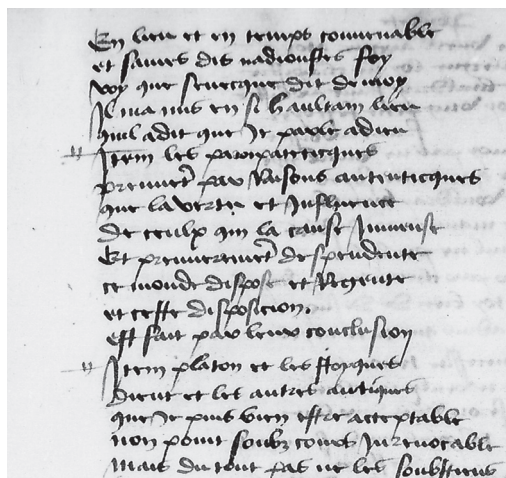 En lieu et en temps conuenable
et saiues dis nadiouftes foy
voy que senecque dit de moy
Il ma mis en si haultain lieu
quil a dit que Je parle a dieu
Item les paripateticques
preuuet par Raisons autenticques
que la vertu et Influence
de ceulx qui la cause Inmense
Et premieremet despendente
ce monde dispose et Regente
et ceste disposicion.
est fait par leur conclusion
Item platon et les stoyques
dient et les autres antiques
que Je puis bien estre acceptable
non point soubz cours Inreuocable
mais du tout pas ne les soubstiens